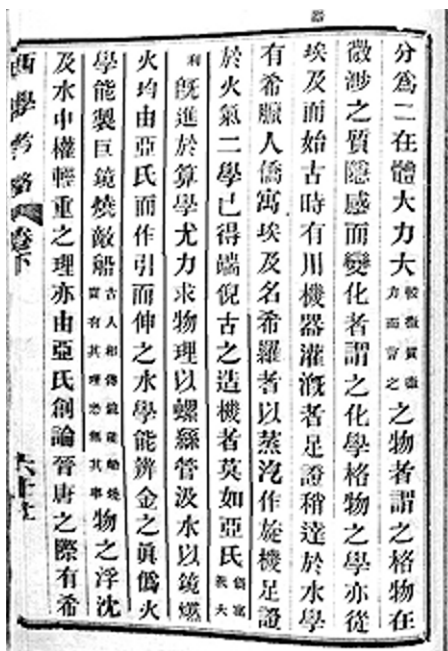 分爲二在體大力大較微質微力而言之之物者謂之格物在
微渺之質隱感而變化者謂之化學格物之學亦從
埃及而始古時有用機器灌漑者足證稍達於水學
有希臘人僑寓埃及名希羅者以蒸汽作旋機足證
於火氣二學已得端倪古之造機者莫如亞氏僑寓義大
利旣進於算學尤力求物理以螺絲管汲水以鏡爇
火均由亞氏而作引而伸之水學能辨金之眞僞火
學能製巨鏡燒敵船古人相傳鏡能燒實有其理恐無其事物之浮沈
及水中權輕重之理亦由亞氏創論晉唐之際有希
西學考略 卷下 六十